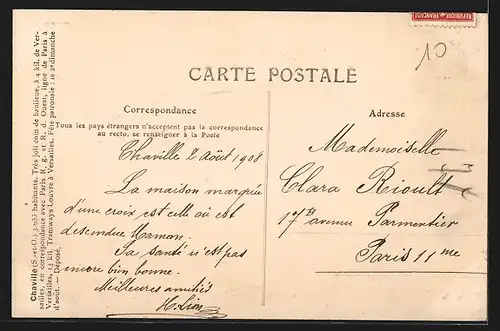 RÉPUBLIQUE FRANÇAISE
10
CARTE POSTALE
Correspondance
Tous les pays étrangers n'acceptent pas la correspondance
au recto, se renseigner à la Poste
Chaville 2 Août 1908
La maison marquée
d'une croix est celle où est
descendue Maman.
Sa santé n'est pas
encore bien bonne.
Meilleures amitiés
H. Lion
Adresse
Mademoiselle
Clara Rioult
17 B avenue Parmentier
Paris 11 me
Chaville (S.-et-O.) 3.033 habitants. Très joli coin de banlieue, à 4 kil. de Ver-
sailles, en correspondance avec Paris R. g. et R. d. Ouest, ligne de Paris à
Versailles, 13 kil. Tramways Louvre à Versailles. Fête patronale : le 2e dimanche
d'août. — Déposé.